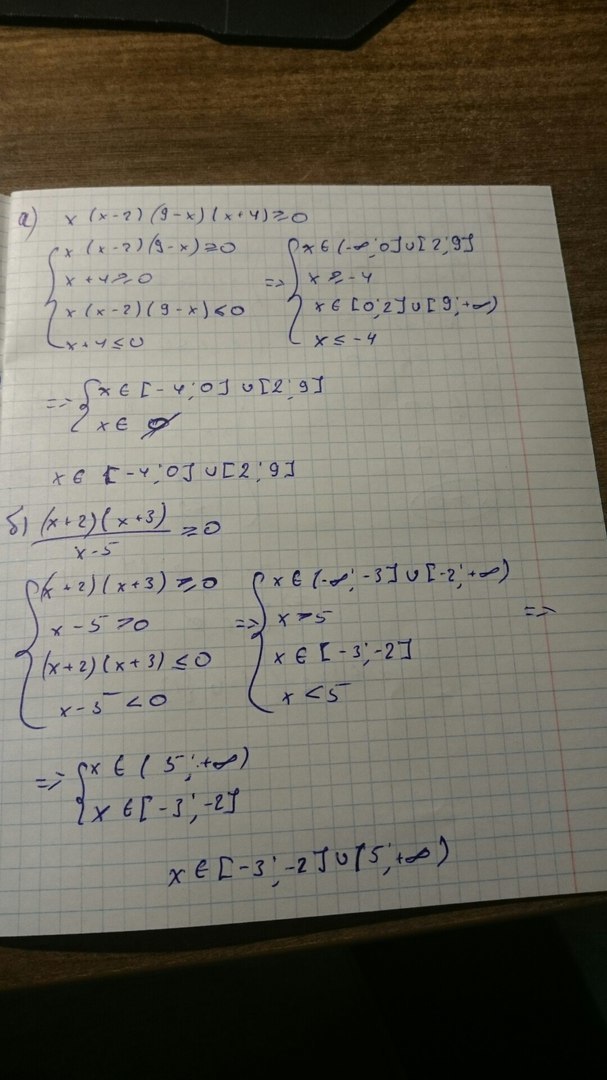 а) x (x-2) (9-x) (x+4) ≥ 0
{ x (x-2) (9-x) ≥ 0
x + 4 ≥ 0
x (x-2) (9-x) ≤ 0
x + 4 ≤ 0
=> { x ∈ (-∞; 0] ∪ [2; 9]
x ≥ -4
x ∈ [0; 2] ∪ [9; +∞)
x ≤ -4
=> { x ∈ [-4; 0] ∪ [2; 9]
x ∈ ∅
x ∈ [-4; 0] ∪ [2; 9]
б) (x+2)(x+3)
x-5
≥ 0
{ (x+2)(x+3) ≥ 0
x - 5 > 0
(x+2)(x+3) ≤ 0
x - 5 < 0
=> { x ∈ (-∞; -3] ∪ [-2; +∞)
x > 5
x ∈ [-3; -2]
x < 5
=>
=> { x ∈ (5; +∞)
x ∈ [-3; -2]
x ∈ [-3; -2] ∪ (5; +∞)